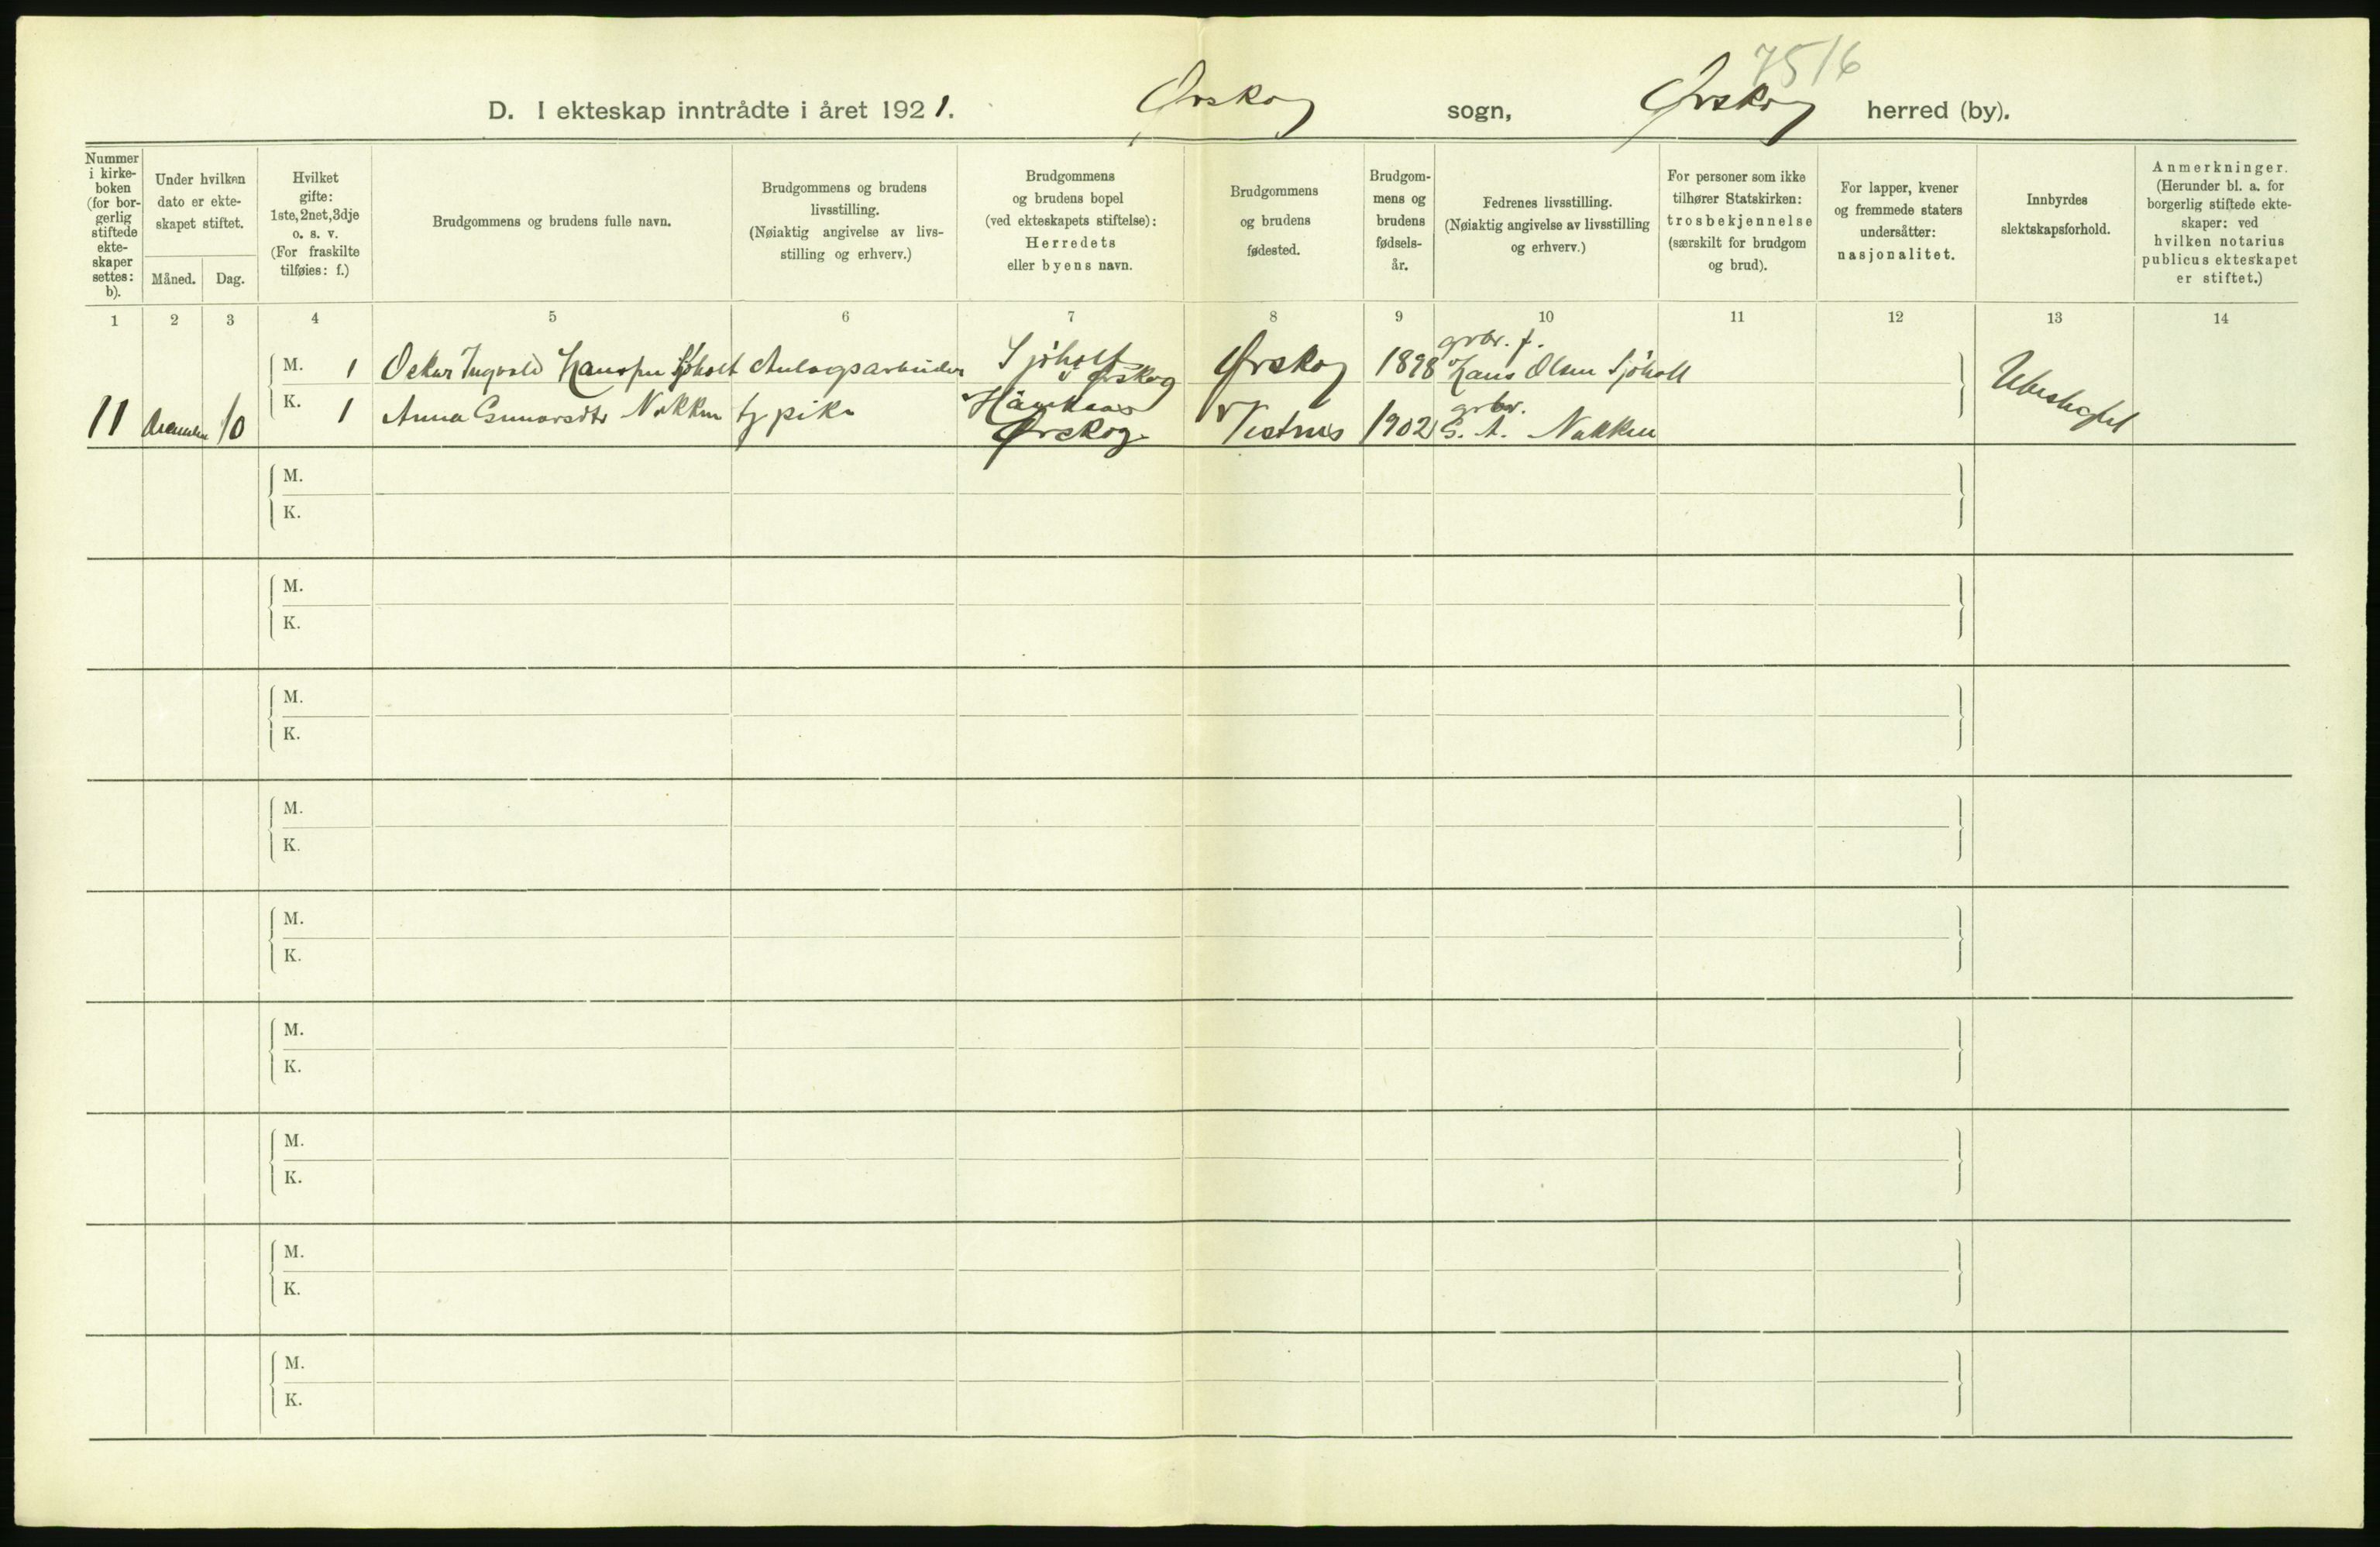 7516
D. I ekteskap inntrådte i året 1921. Ørskog sogn, Ørskog herred (by).
Nummer i kirkeboken (for borgerlig stiftede ekteskaper settes: b).
Under hvilken dato er ekteskapet stiftet.
Måned. Dag.
Hvilket gifte: 1ste, 2net, 3dje o. s. v. (For fraskilte tilføies: f.)
Brudgommens og brudens fulle navn.
Brudgommens og brudens livsstilling. (Nøiaktig angivelse av livsstilling og erhverv.)
Brudgommens og brudens bopel (ved ekteskapets stiftelse): Herredets eller byens navn.
Brudgommens og brudens fødested.
Brudgommens og brudens fødselsår.
Fedrenes livsstilling. (Nøiaktig angivelse av livsstilling og erhverv.)
For personer som ikke tilhører Statskirken: trosbekjennelse (særskilt for brudgom og brud).
For lapper, kvener og fremmede staters undersåtter: nasjonalitet.
Innbyrdes slektskapsforhold.
Anmerkninger. (Herunder bl. a. for borgerlig stiftede ekteskaper: ved hvilken notarius publicus ekteskapet er stiftet.)
1 2 3 4 5 6 7 8 9 10 11 12 13 14
M. 1 Oskar Ingvald Hansen Sjøholt Anlægsarbeider Sjøholt Ørskog Ørskog 1898 grbr. f. Hans Olsen Sjøholt
11 December 10 K. 1 Anna Gunnarsdtr Nakken tj pike Ørskog Vestnes 1902 grbr. G. A. Nakken Ubeslegtet
M.
K.
M.
K.
M.
K.
M.
K.
M.
K.
M.
K.
M.
K.
M.
K.
M.
K.